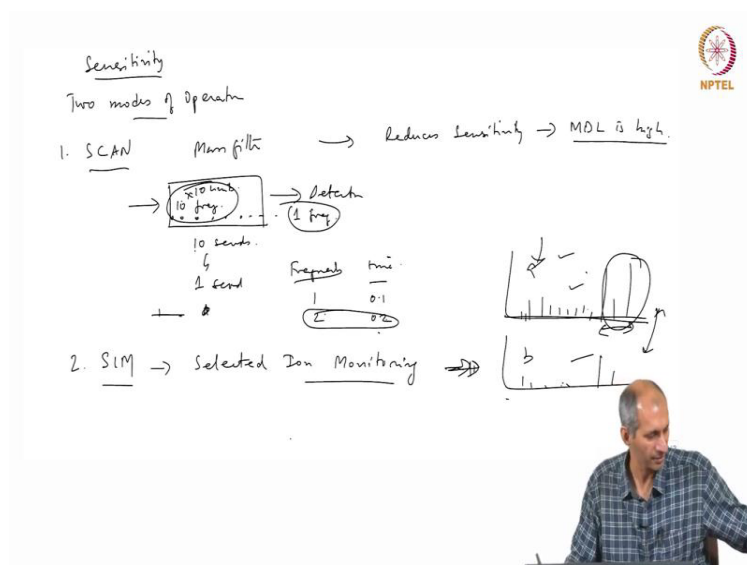 NPTEL
Sensitivity
Two modes of Operation
1. SCAN Mass filter → Reduces Sensitivity → MDL is high.
×10
10 freq.
→ Detector
1 freq
10 sends.
1 send
Fragments time
1 0.1
2 0.2
2. SIM → Selected Ion Monitoring
b